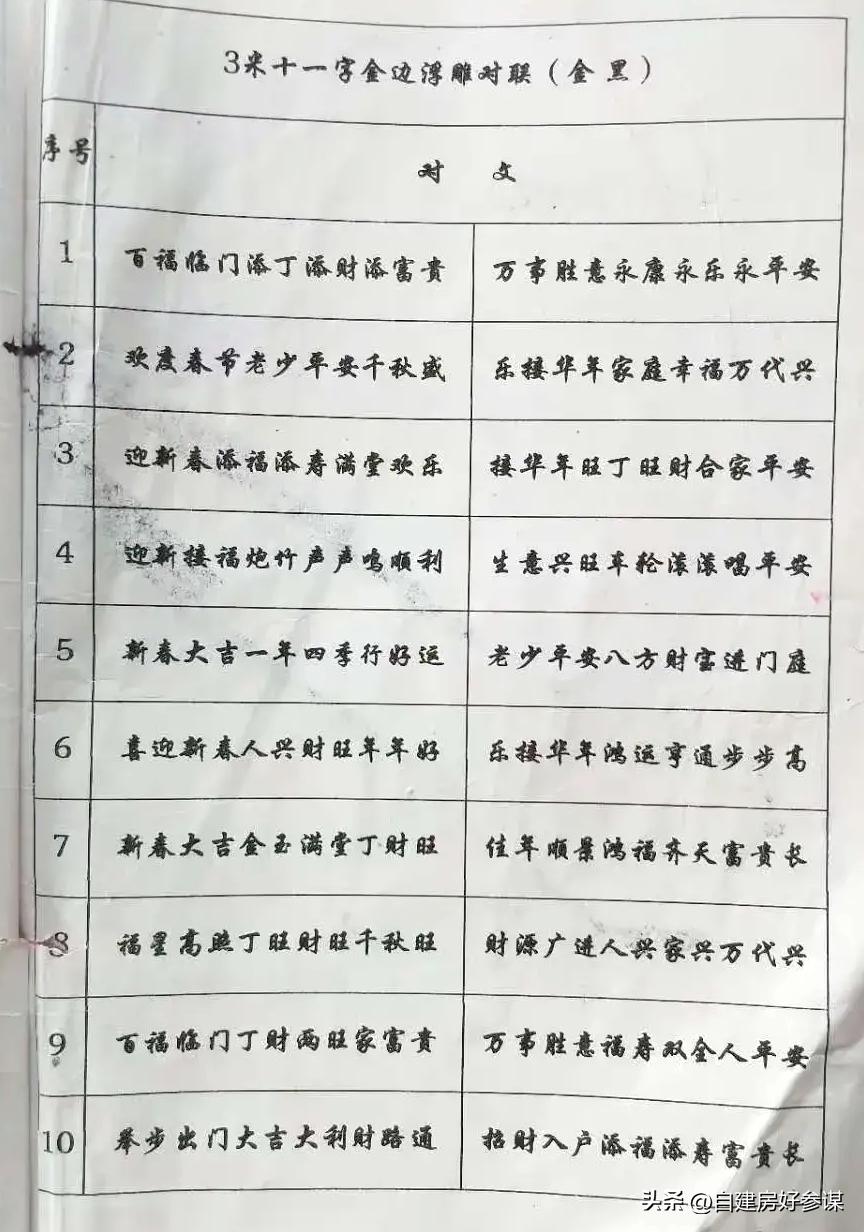 3米十一字金边浮雕对联（金黑）
序号 对文
1 百福临门添丁添财添富贵 万事胜意永康永乐永平安
2 欢度春节老少平安千秋盛 乐接华年家庭幸福万代兴
3 迎新春添福添寿满堂欢乐 接华年旺丁旺财合家平安
4 迎新接福炮竹声声鸣顺利 生意兴旺车轮滚滚唱平安
5 新春大吉一年四季行好运 老少平安八方财宝进门庭
6 喜迎新春人兴财旺年年好 乐接华年鸿运亨通步步高
7 新春大吉金玉满堂丁财旺 佳年顺景鸿福齐天富贵长
8 福星高照丁旺财旺千秋旺 财源广进人兴家兴万代兴
9 百福临门丁财两旺家富贵 万事胜意福寿双全人平安
10 举步出门大吉大利财路通 招财入户添福添寿富贵长
头条 @自建房好参谋